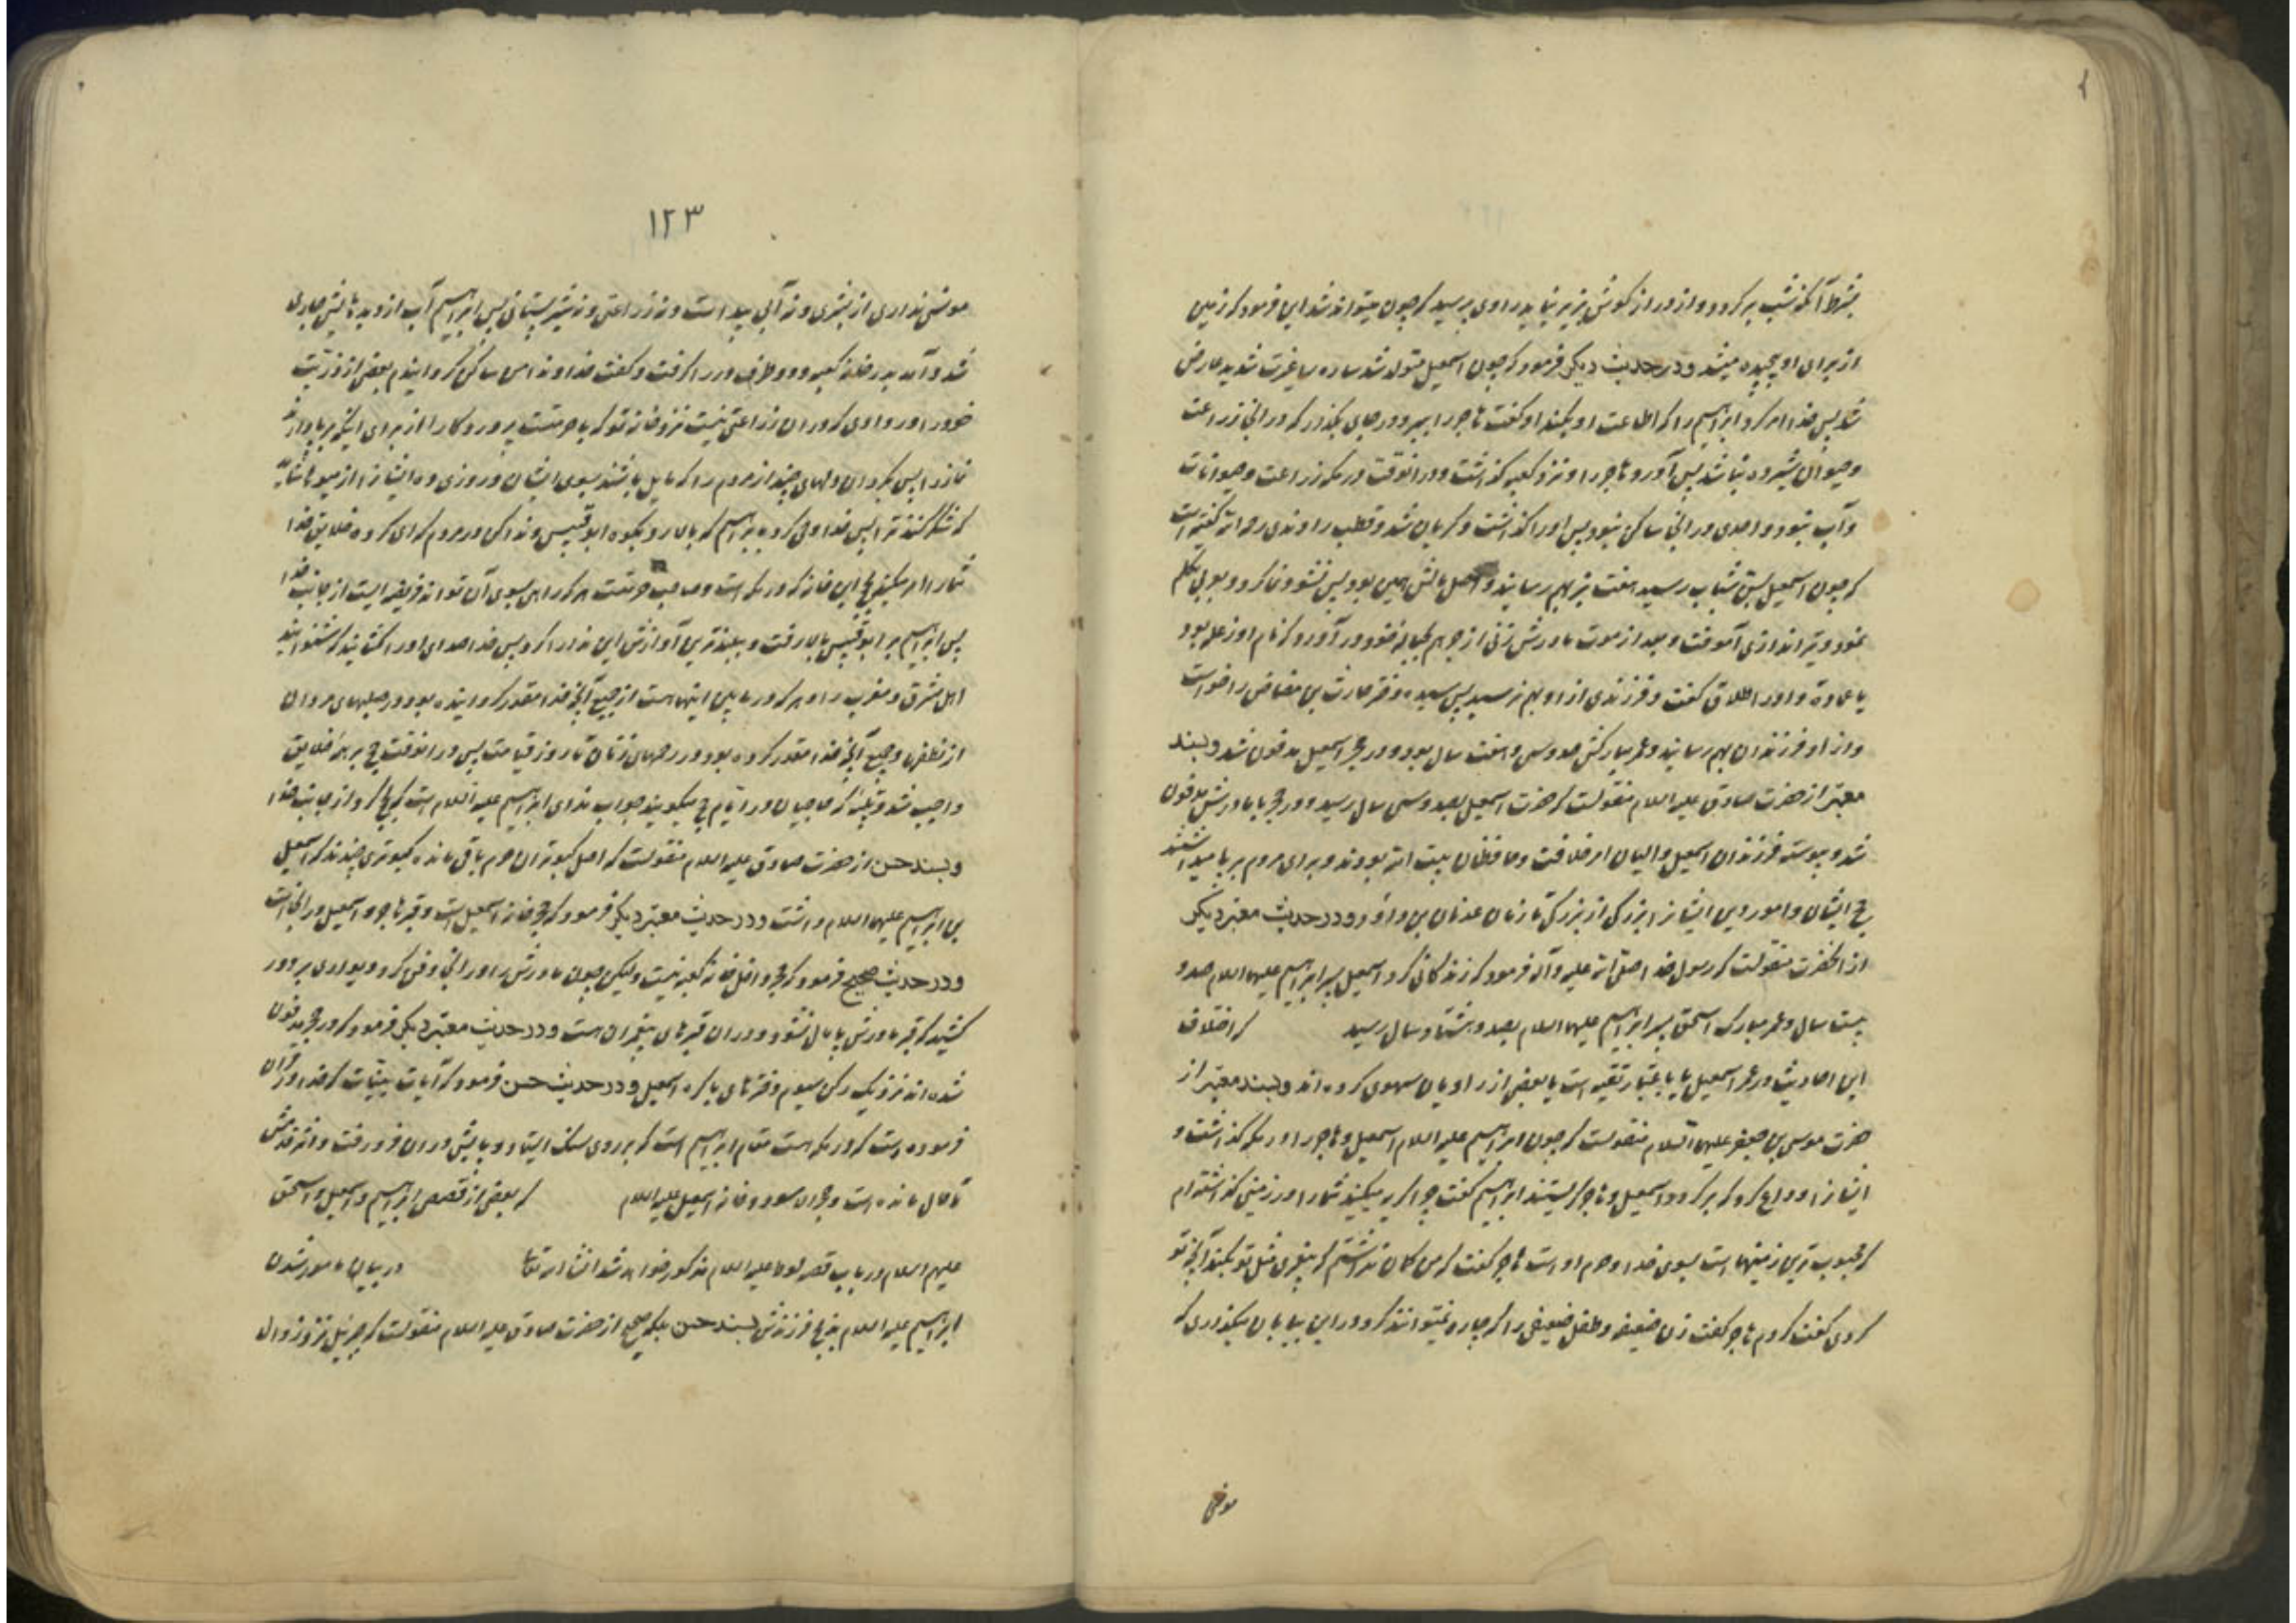 بشرط آنکه شب برگردد و از دراز کوش بزیر نیاید راوی پرسید که چون میتواند شد این فرمود که زمین
از برای او پیچیده میشد و در حدیث دیگر فرمود که چون اسمعیل متولد شد ساره را غیرت شدید عارض
شد پس خدا امر کرد ابراهیم را که اطاعت او بکند او گفت هاجر را ببر و در جای بگذار که در انجا زراعت
و حیوان شیرده نباشد پس آورد هاجر را و نزد کعبه گذاشت و در انوقت در مکه زراعت و حیوانات
و آب نبود و احدی در انجا ساکن نبود پس او را گذاشت و گریان شد و قطب راوندی رحه الله گفته است
که چون اسمعیل بسن شباب رسید هفت بز بهم رسانید و اصل مالش همین بود پس نشو و نما کرد و بعربی تکلم
نمود و تیر اندازی آموخت و بعد از موت مادرش زنی از جرهم بحباله خود در آورد که نام او زعله بود
یا عماده و او را طلاق گفت و فرزندی از او بهم نرسید پس سیده دختر حارث بن مضاض را خواست
و از او فرزندان بهم رسانید و عمر مبارکش صد و سی و هفت سال بود و در حجر اسمعیل مدفون شد و بسند
معتبر از حضرت صادق علیه السلام منقولست که حضرت اسمعیل بصد و سی سال رسید و در حجر با مادرش مدفون
شد و پیوسته فرزندان اسمعیل والیان امر خلافت و حافظان بیت الله بودند و برای مردم بر پا میداشتند
حج ایشان و امور دین ایشانرا بزرگی از بزرگی تا زمان عدنان بن داود و در حدیث معتبر دیگر
از انحضرت منقولست که رسول خدا صلی الله علیه وآله فرمود که زندگانی کرد اسمعیل پسر ابراهیم علیهما السلام صد و
بیست سال و عمر مبارک اسحق پسر ابراهیم علیهما السلام بصد و هشتاد سال رسید که اختلاف
این احادیث در عمر اسمعیل یا باعتبار تقیه است یا بعض از راویان سهوی کرده اند و بسند معتبر از
حضرت موسی بن جعفر علیهما السلام منقولست که چون ابراهیم علیه السلام اسمعیل و هاجر را در مکه گذاشت و
ایشانرا وداع کرد که برگردد اسمعیل و هاجر گریستند ابراهیم گفت چرا گریه میکنید شما را در زمینی گذاشته ام
که محبوب ترین زمینها است بسوی خدا و حرم او است هاجر گفت که من گمان نداشتم که پیغمبری مثل تو بکند آنچه تو
کردی گفت چه کردم هاجر گفت زن ضعیفه و طفل ضعیفی را که چاره نمیتوانند کرد در این بیابان میگذاری که
مونسی
۱۲۳
مونسی ندارند از بشری و نه آبی پیدا است و نه زراعتی و نه شیر پستانی پس ابراهیم آب از دیدهایش جاری
شد و آمد بدر خانه کعبه و دو طرف در را گرفت و گفت خداوندا من ساکن گردانیدم بعض از ذریت
خود را در وادی که در ان زراعتی نیست نزد خانه تو که با حرمتست پروردگارا از برای اینکه بر پا دارند
نماز را پس بگردان دلهای چند از مردم را که مایل باشند بسوی ایشان و روزی ده ایشانرا از میوها شاید
که شکر کنند ترا پس خدا وحی کرد به ابراهیم که بالا رو بکوه ابوقبیس و ندا کن در مردم که ای گروه خلایق خدا
شما را امر میکند بحج این خانه که در مکه است و صاحب حرمتست هر که راهی بسوی آن تواند فریضه ایست از جانب خدا
پس ابراهیم بر ابوقبیس بالا رفت و ببلندترین آوازش این ندا را کرد پس خدا صدای او را کشانید که شنوانید
اهل مشرق و مغرب را و هر که در مابین اینها است از جمیع آنچه خدا مقدر گردانیده بود در صلبهای مردان
از نطفها و جمیع آنچه خدا مقدر کرده بود در رحمهای زنان تا روز قیامت پس در انوقت حج بر همه خلایق
واجب شد و تلبیه که حاجیان در ایام حج میکویند جواب ندای ابراهیم علیه السلام است که بحج کرد از جانب خدا
و بسند حسن از حضرت صادق علیه السلام منقولست که اصل کبوتران حرم باقی مانده کبوتری چندند که اسمعیل
بن ابراهیم علیهما السلام داشت و در حدیث معتبر دیگر فرمود که حجر خانه اسمعیل است و قبر هاجر و اسمعیل در انجاست
و در حدیث صحیح فرمود که حجر داخل خانه کعبه نیست و لیکن چون مادرش را در انجا دفن کرد دیواری بر دور
کشید که قبر مادرش پامال نشود و در ان قبرهای پیغمبران هست و در حدیث معتبر دیگر فرمود که در حجر مدفون
شده اند نزدیک رکن سیوم دخترهای باکره اسمعیل و در حدیث حسن فرمود که آیات بینات که خدا در قرآن
فرموده است که در مکه است مقام ابراهیم است که بر روی سنک ایستاد و پایش در ان فرو رفت و اثر قدمش
تا حال مانده است و حجر الاسود و خانه اسمعیل علیه السلام که بعض از قصص ابراهیم و اسمعیل و اسحق
علیهم السلام در باب قصه لوط علیه السلام مذکور خواهد شد انشاء الله تعالی در بیان مامور شدن
ابراهیم علیه السلام بذبح فرزندش بسند حسن بلکه صحیح از حضرت صادق علیه السلام منقولست که جبرئیل نزد زوال